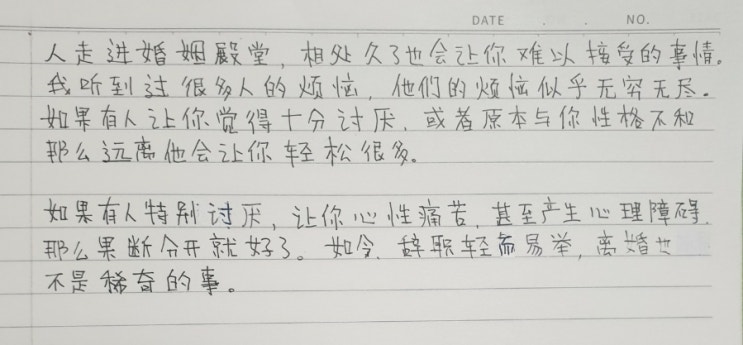 DATE . . NO.
人走进婚姻殿堂，相处久了也会让你难以接受的事情。
我听到过很多人的烦恼，他们的烦恼似乎无穷无尽。
如果有人让你觉得十分讨厌，或者原本与你性格不和
那么远离他会让你轻松很多。
如果有人特别讨厌，让你心性痛苦，甚至产生心理障碍，
那么果断分开就好了。如今，辞职轻而易举，离婚也
不是稀奇的事。